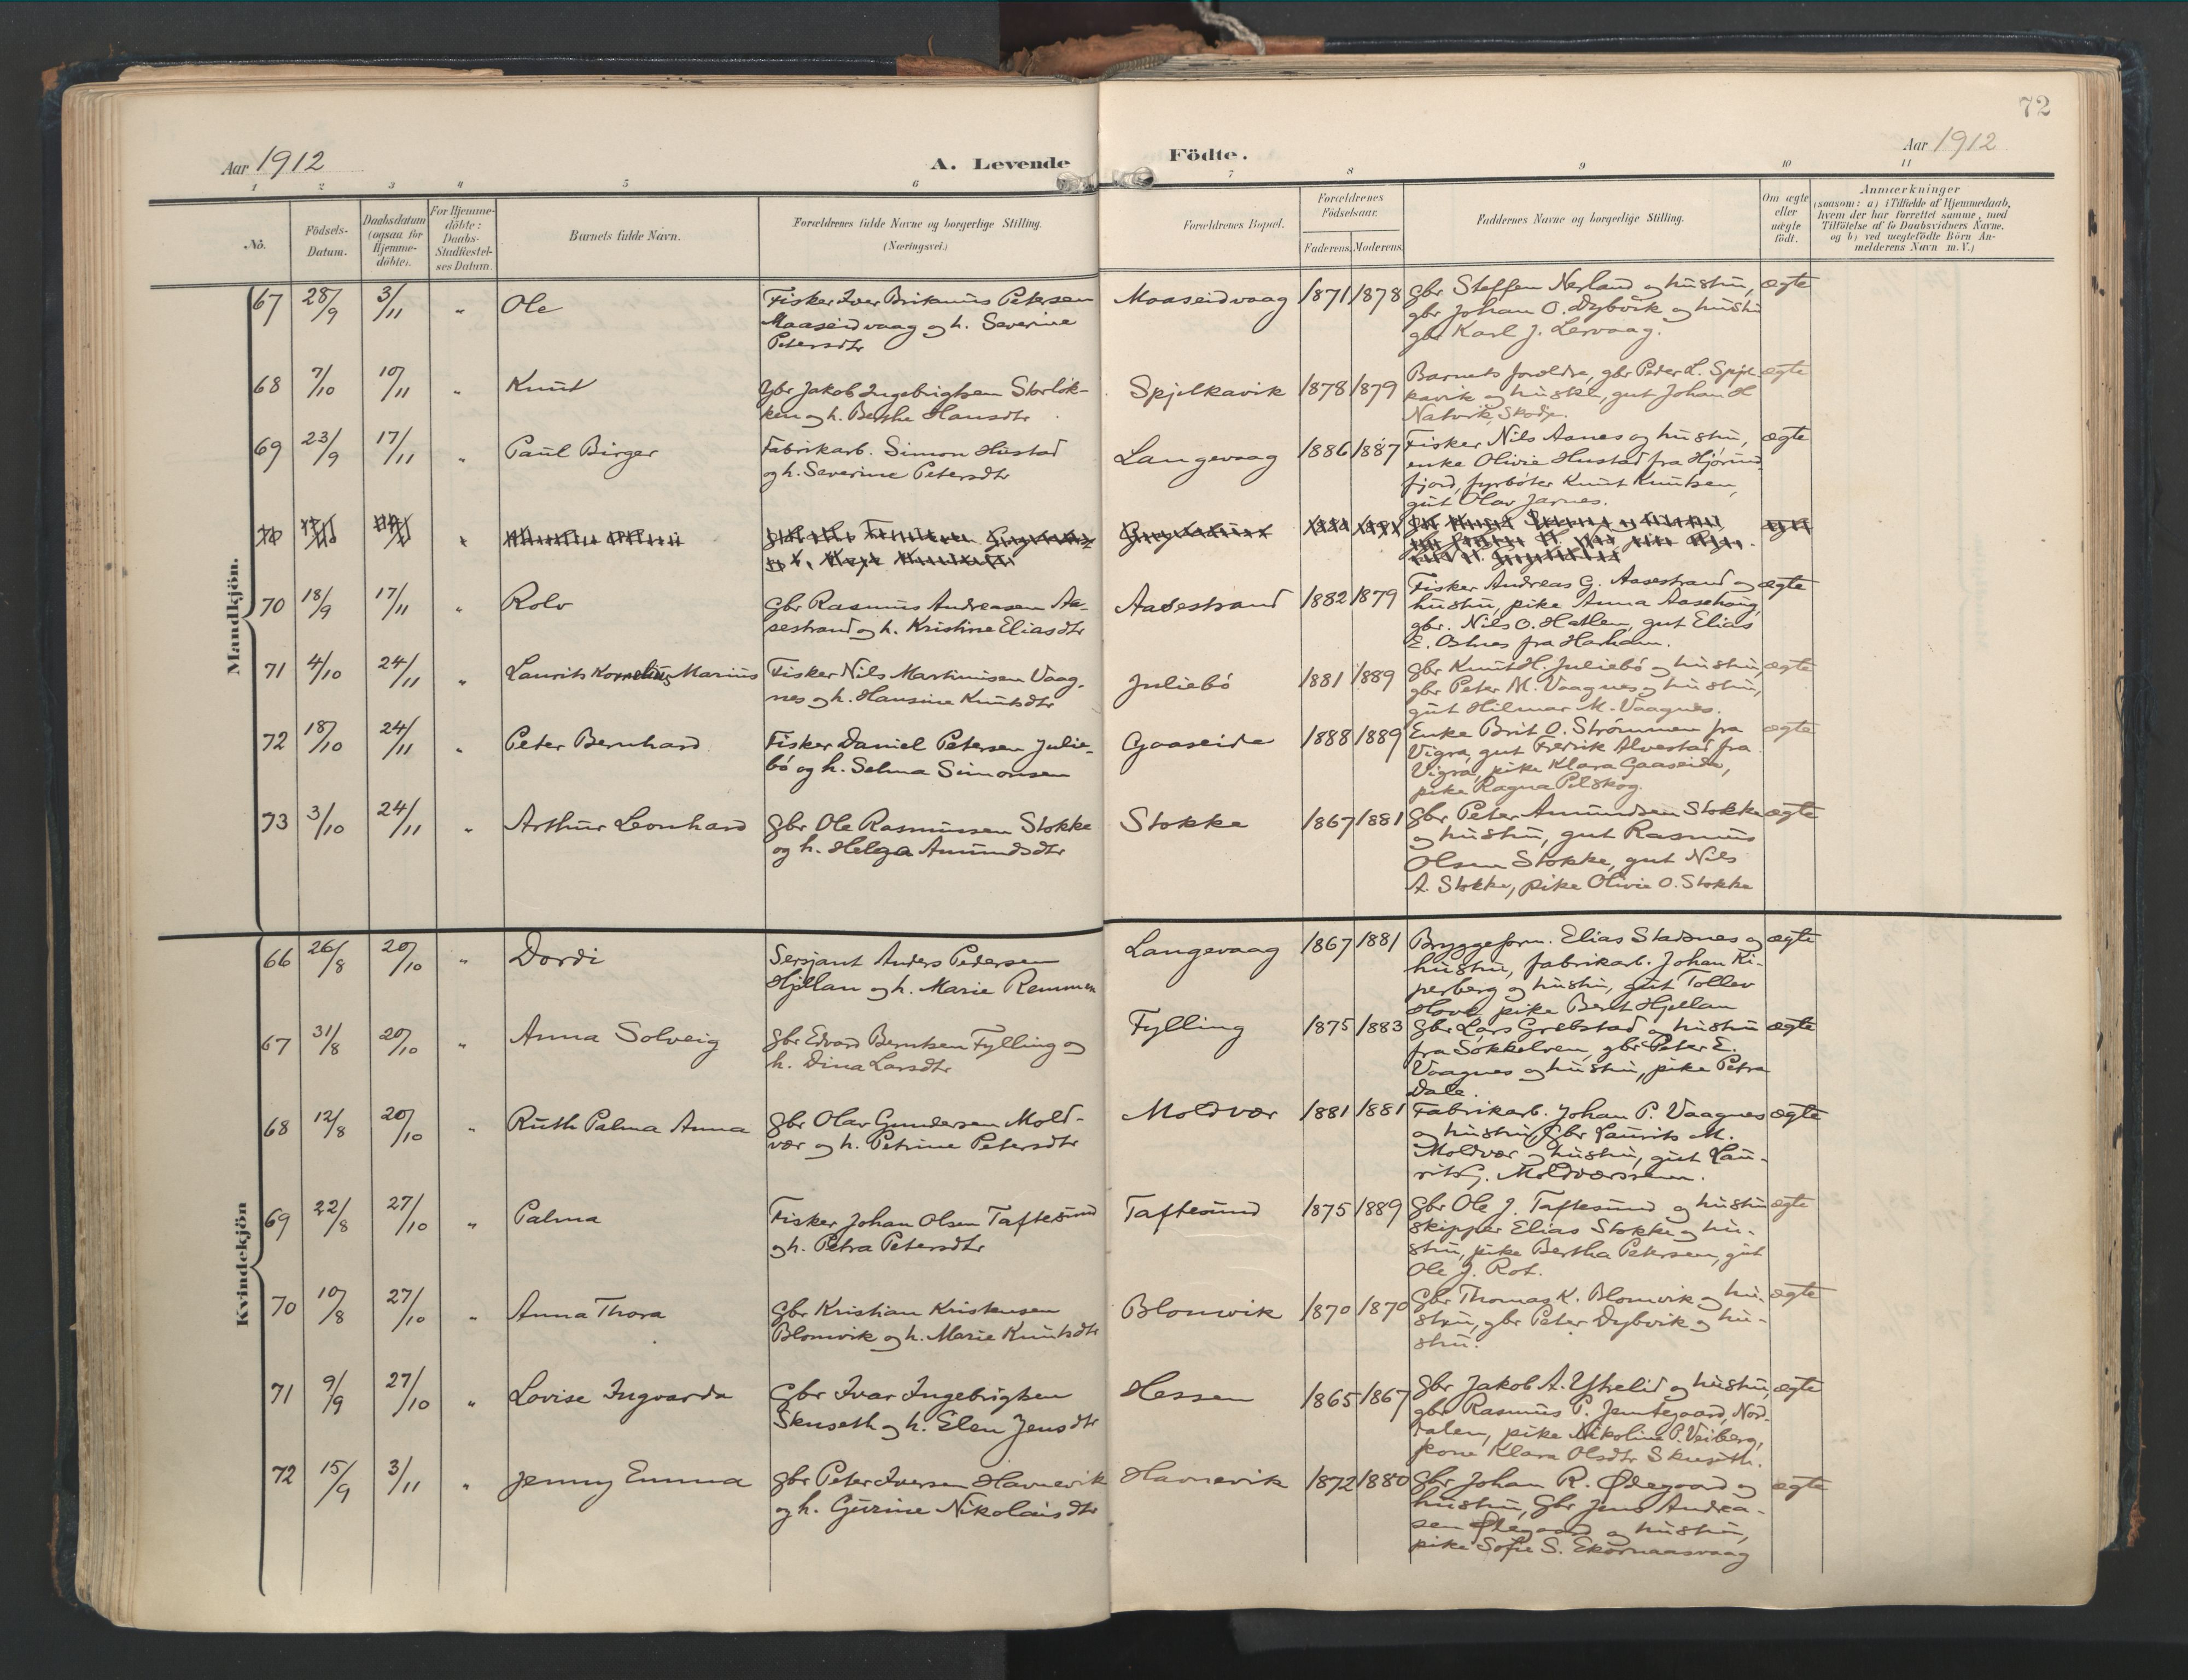 72
Aar 1912
A. Levende Födte.
Aar 1912
1 2 3 4 5 6 7 8 9 10 11
No.
Födsels-
Datum.
Daabsdatum
(ogsaa for
Hjemme-
döbte).
For Hjemme-
döbte:
Daabs-
Stadfæstel-
ses Datum.
Barnets fulde Navn.
Forældrenes fulde Navne og borgerlige Stilling.
(Næringsvei.)
Forældrenes Bopæl.
Forældrenes
Födselsaar.
Faderens. Moderens.
Faddernes Navne og borgerlige Stilling.
Om ægte
eller
uægte
födt.
Anmærkninger
(saasom: a) i Tilfælde af Hjemmedaab,
hvem der har forrettet samme, med
Tilföielse af to Daabsvidners Navne.
og b) ved uægtefödte Börn An-
melderens Navn m. V.)
Mandkjön.
67 28/9 3/11 " Ole
Fisker Iver Britanus Petersen
Maaseidvaag og h. Severine
Petersdtr
Maaseidvaag 1871 1878
gbr Steffen Nesland og hustru,
gbr Johan O. Dybvik og hustru
gbr Karl J. Lervaag.
ægte
68 7/10 10/11 " Knut
Gbr Jakob Ingebrigtsen Storløk-
ken og h. Berthe Hansdtr
Spjelkavik 1878 1879
Barnets foreldre, gbr Peder L. Spjel-
kavik og hustru, gut Johan H
Natvik, Skodje.
ægte
69 23/9 17/11 " Paul Birger
Fabrikarb. Simon Hustad
og h. Severine Petersdtr
Langevaag 1886 1887
Fisker Nils Aanes og hustru,
enke Olivie Hustad fra Hjørund-
fjord, fyrbøter Knut Knutsen,
gut Olav Jarnes.
ægte
70 18/9 17/11 " Rolv
Gbr Rasmus Andreasen Aa-
sestrand og h. Kristine Eliasdtr
Aasestrand 1882 1879
Fisker Andreas G. Aasestrand og
hustru, pike Anna Aasehaug,
gbr. Nils O. Hatlen, gut Elias
E. Ostnes fra Harham.
ægte
71 4/10 24/11 " Laurits Kornelius Marius
Fisker Nils Martinusen Vaag-
nes og h. Hansine Knutsdtr
Juliebø 1881 1889
Gbr Knut H. Juliebø og hustru,
gbr Peter M. Vaagnes og hustru,
gut Hilmar M. Vaagnes.
ægte
72 18/10 24/11 " Peter Bernhard
Fisker Daniel Petersen Julie-
bø og h. Selma Simonsen
Gaaseide 1888 1889
Enke Brit O. Strømmen fra
Vigra, gut Fredrik Alvestad fra
Vigra, pike Klara Gaaseide,
pike Ragna Pilskog.
ægte
73 3/10 24/11 " Arthur Leonhard
Gbr Ole Rasmussen Stokke
og h. Helga Amundsdtr
Stokke 1867 1881
Gbr Peter Amundsen Stokke
og hustru, gut Rasmus
Olsen Stokke, gut Nils
A. Stokke, pike Olivie O. Stokke
ægte
Kvindekjön
66 26/8 20/10 " Dordi
Sersjant Anders Pedersen
Hjellan og h. Marie Remmen
Langevaag 1867 1881
Bryggeform. Elias Stadsnes og
hustru, fabrikarb. Johan Ki-
perberg og hustru, gut Tollev
Hovl, pike Berit Hjellan
ægte
67 31/8 20/10 " Anna Solveig
Gbr Edvard Berntsen Fylling og
h. Dina Larsdtr
Fylling 1875 1883
Gbr Lars Grebstad og hustru
fra Søkkelven, gbr Peter E.
Vaagnes og hustru, pike Petra
Dale.
ægte
68 12/8 20/10 " Ruth Palma Anna
Gbr Olav Gundersen Mold-
vær og h. Petrine Petersdtr
Moldvær 1881 1881
Fabrikarb. Johan P. Vaagnes
og hustru, Gbr Laurits M.
Moldvær og hustru, gut Lau-
rits J. Moldværsnen.
ægte
69 22/8 27/10 " Palma
Fisker Johan Olsen Taftesund
og h. Petra Petersdtr
Taftesund 1875 1889
Gbr Ole J. Taftesund og hustru
skipper Elias Stokke og hu-
stru, pike Bertha Petersen, gut
Ole J. Rot.
ægte
70 10/8 27/10 " Anna Thora
Gbr Kristian Kristensen
Blomvik og h. Marie Knutsdtr
Blomvik 1870 1870
Gbr Thomas K. Blomvik og hu-
stru, gbr Peter Dybvik og hu-
stru.
ægte
71 9/9 27/10 " Lovise Ingvarda
Gbr Ivar Ingebrigtsen
Skuseth og h. Elen Jensdtr
Hessen 1865 1867
Gbr Jakob A. Ytrelid og hustru,
gbr Rasmus P. Jemtegaard, Nord-
dalen, pike Nikoline P. Veiberg,
kone Klara Olsdtr Skuseth.
ægte
72 15/9 3/11 " Jenny Emma
Gbr Peter Iversen Havnevik
og h. Gurine Nikolaisdtr
Havnevik 1872 1880
Gbr Johan R. Ødegaard og
hustru, Gbr Jens Andrea-
sen Ødegaard og hustru,
pike Sofie S. Ekornaasvaag
ægte